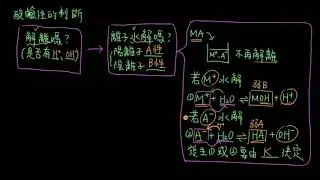 酸鹼性的判斷
解離嗎?
(是否有H⁺, OH⁻)
離子水解嗎?
陽離子 A性
陰離子 B性
MA
M⁺ A⁻ 不再解離
若 M⁺ 水解
弱B
① M⁺ + H₂O ⇌ MOH + H⁺
若 A⁻ 水解
弱A
② A⁻ + H₂O ⇌ HA + OH⁻
發生①或②要由 K 決定